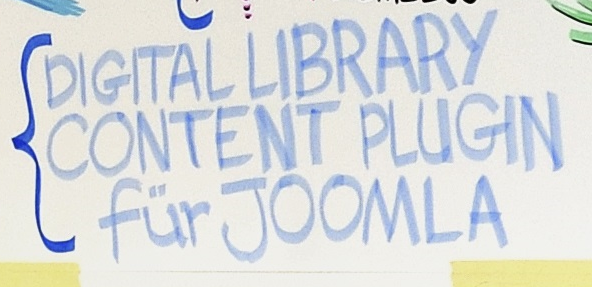 DIGITAL LIBRARY
CONTENT PLUGIN
für JOOMLA